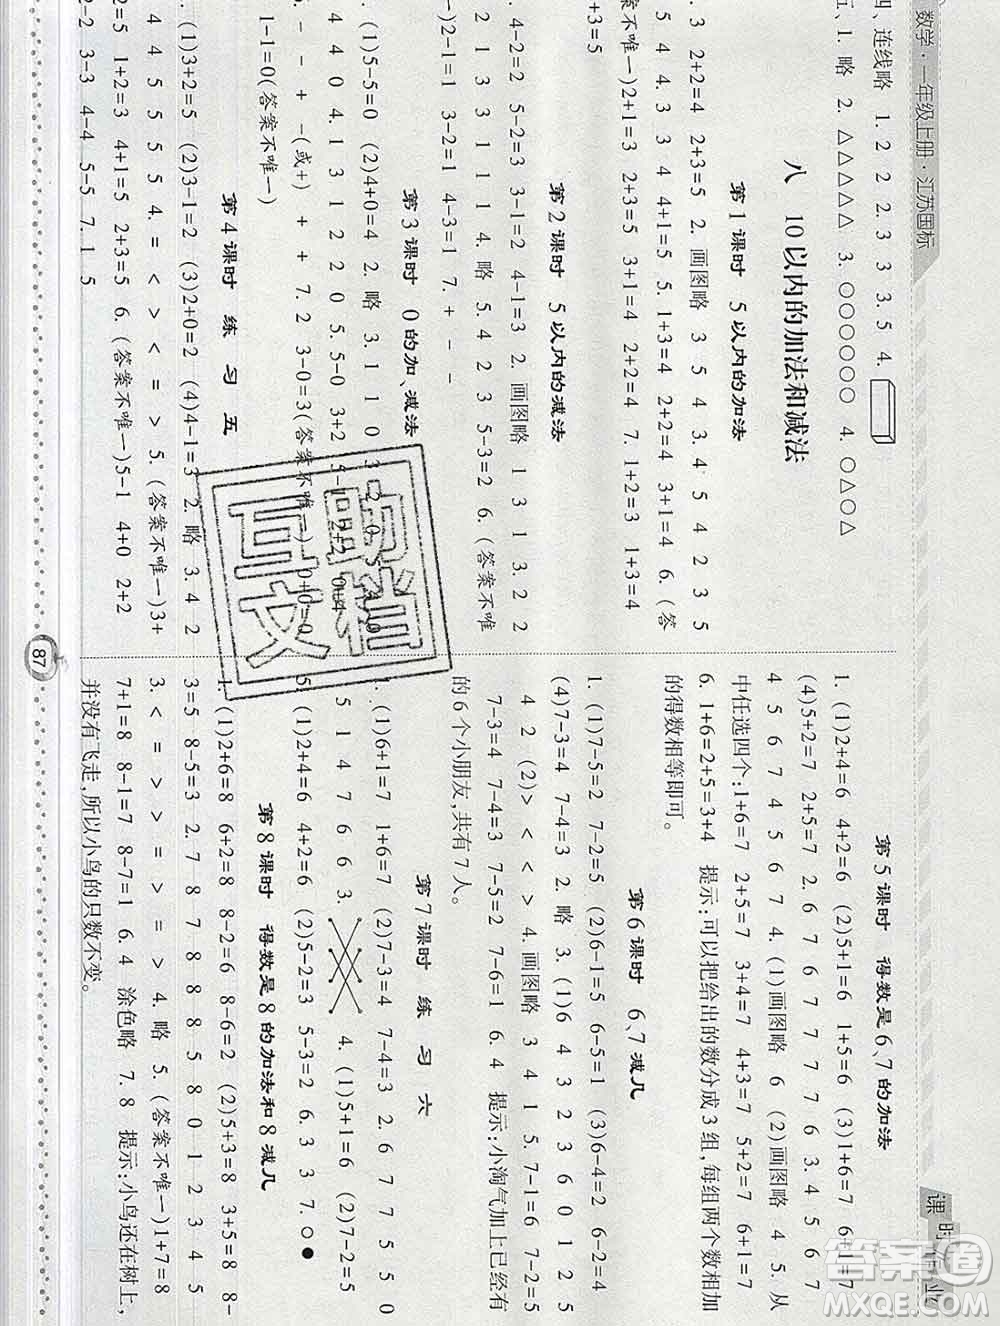 数学·一年级上册·江苏国标
四、连线略 1. 2 2 2. 3 3 3. 5 4.
五、1. 略 2. △△△△△ 3. ○○○○○○ 4. ○△○△
八 10以内的加法和减法
第1课时 5以内的加法
3 2+2=4 2+3=5 2. 画图略 3 5 4 5 3. 4 5 4 2 3 5
5 4 4. 3 3 4 4 5 5. 1+3=4 2+2=4 3+1=4 6. (答
案不唯一)2+1=3 2+3=5 3+1=4 2+2=4 7. 1+2=3 1+3=4
2+3=5
第2课时 5以内的减法
4-2=2 5-2=3 3-1=2 4-1=3 2. 画图略 1 3 1 3. 2 2
2 1 3 3 1 1 1 4. 略 5. 4 2 2 3 5-3=2 6. (答案不唯
一)2-1=1 3-2=1 4-3=1 7. + - -
第3课时 0的加、减法
(1)5-5=0 (2)4+0=4 2. 略 3. 1 1 0
4 4 0 4. 1 3 1 2 2 0 5. 5-0 3+2
- - + - (或+) + + 7. 2 3-0=3(答案不唯一) 0+0=0
1-1=0(答案不唯一)
第4课时 练 习 五
(1)3+2=5 (2)3-1=2 (3)2+0=2 (4)4-1=3 2. 略 3. 4 2
4 4 5 5 5 5 4. = < > < = > 5. (答案不唯一)3+
2=5 1+2=3 4+1=5 2+3=5 6. (答案不唯一)5-1 4+0 2+2
2-2 3-3 4-4 5-5 7. 1 5
第5课时 得数是6、7的加法
1. (1)2+4=6 4+2=6 (2)5+1=6 1+5=6 (3)1+6=7 6+1=7
(4)5+2=7 2+5=7 2. 6 7 6 7 7 7 7 3. 6 7 5 7
4 5 6 7 4 5 6 7 4. (1)画图略 6 (2)画图略 4 5. 从
中任选四个:1+6=7 2+5=7 3+4=7 4+3=7 5+2=7 6+1=7
6. 1+6=2+5=3+4 提示:可以把给出的数分成3组,每组两个数相加
的得数相等即可。
第6课时 6、7减几
1. (1)7-5=2 7-2=5 (2)6-1=5 6-5=1 (3)6-4=2 6-2=4
(4)7-3=4 7-4=3 2. 略 3. (1)6 4 3 2 3 6 0 1 2
4 2 (2)> < < > 4. 画图略 3 4 1 5. 7-1=6 7-2=5
7-3=4 7-4=3 7-5=2 7-6=1 6. 4 提示:小淘气加上已经有
的6个小朋友,共有7人。
第7课时 练 习 六
1. (1)6+1=7 1+6=7 (2)7-3=4 7-4=3 2. 6 7 7 5 0
5 1 4 7 6 6 3. 4. (1)5+1=6 (2)7-2=5
5. (1)2+4=6 4+2=6 (2)5-2=3 5-3=2 6. 3 3 7. ○●
第8课时 得数是8的加法和8减几
1. (1)2+6=8 6+2=8 8-2=6 8-6=2 (2)5+3=8 3+5=8 8-
3=5 8-5=3 2. 7 8 7 8 8 8 5 8 0 1 2 3 4 5
3. < = > > = > = > 4. 略 5. (答案不唯一)1+7=8
7+1=8 8-1=7 8-7=1 6. 4 涂色略 7. 8 提示:小鸟还在树上,
并没有飞走,所以小鸟的只数不变。
课时作业
87
答案圈
MXQE.COM